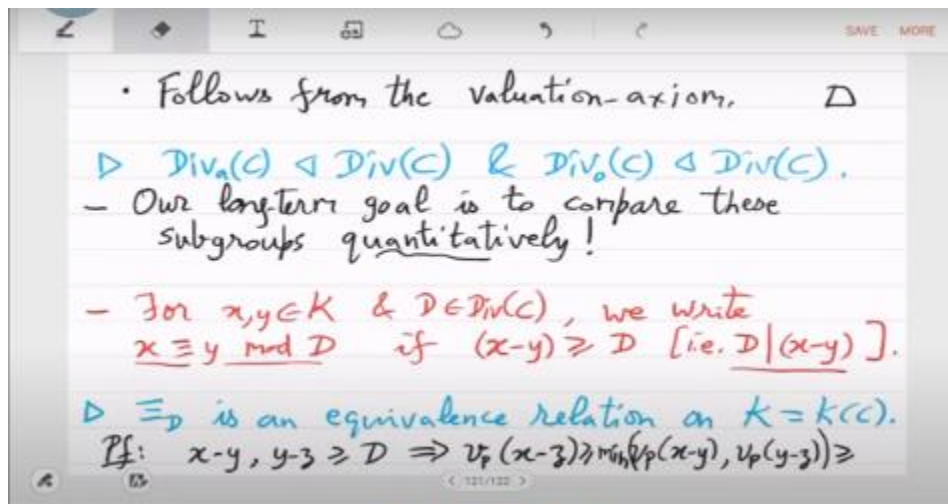 SAVE MORE
• Follows from the valuation-axiom. □
▷ Divₐ(C) ◁ Div(C) & Div₀(C) ◁ Div(C).
– Our long-term goal is to compare these
subgroups quantitatively!
– For x,y∈K & D∈Div(C), we write
x ≡ y mod D if (x-y) ≥ D [i.e. D|(x-y)].
▷ ≡_D is an equivalence relation on K = k(C).
Pf: x-y, y-z ≥ D ⇒ v_p(x-z) ≥ min(v_p(x-y), v_p(y-z)) ≥
< 121/122 >